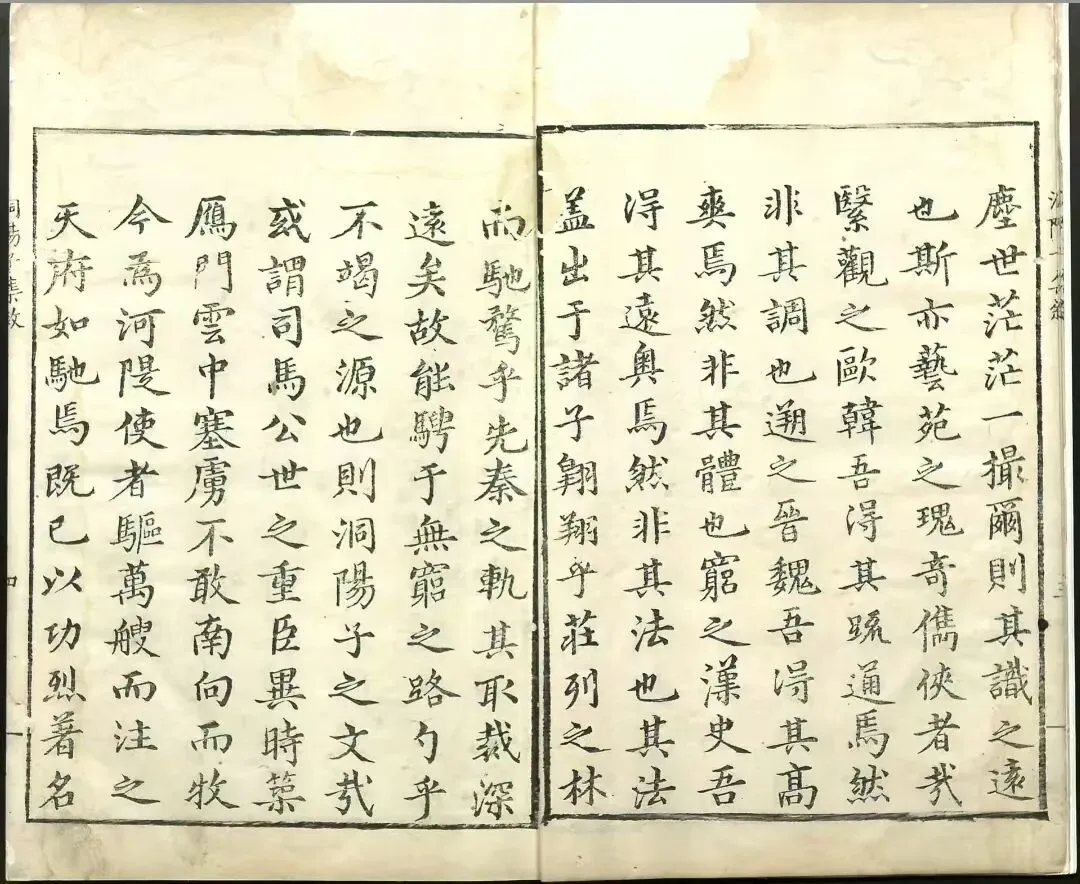 塵世茫茫一撮爾則其識之遠
也斯亦藝苑之瑰奇儁俠者㢤
繄觀之歐韓吾得其䟽通焉然
非其調也遡之晉魏吾得其高
爽焉然非其體也窮之漢史吾
得其遠奧焉然非其法也其法
葢出于諸子翺翔乎莊列之林
而馳騖乎先秦之軌其取裁深
遠矣故能騁于無窮之路勺乎
不竭之源也則洞陽子之文㢤
或謂司馬公世之重臣異時築
鴈門雲中塞虜不敢南向而牧
今爲河隄使者驅萬艘而注之
天府如馳焉旣已以功烈著名
洞陽子集敘
四
三